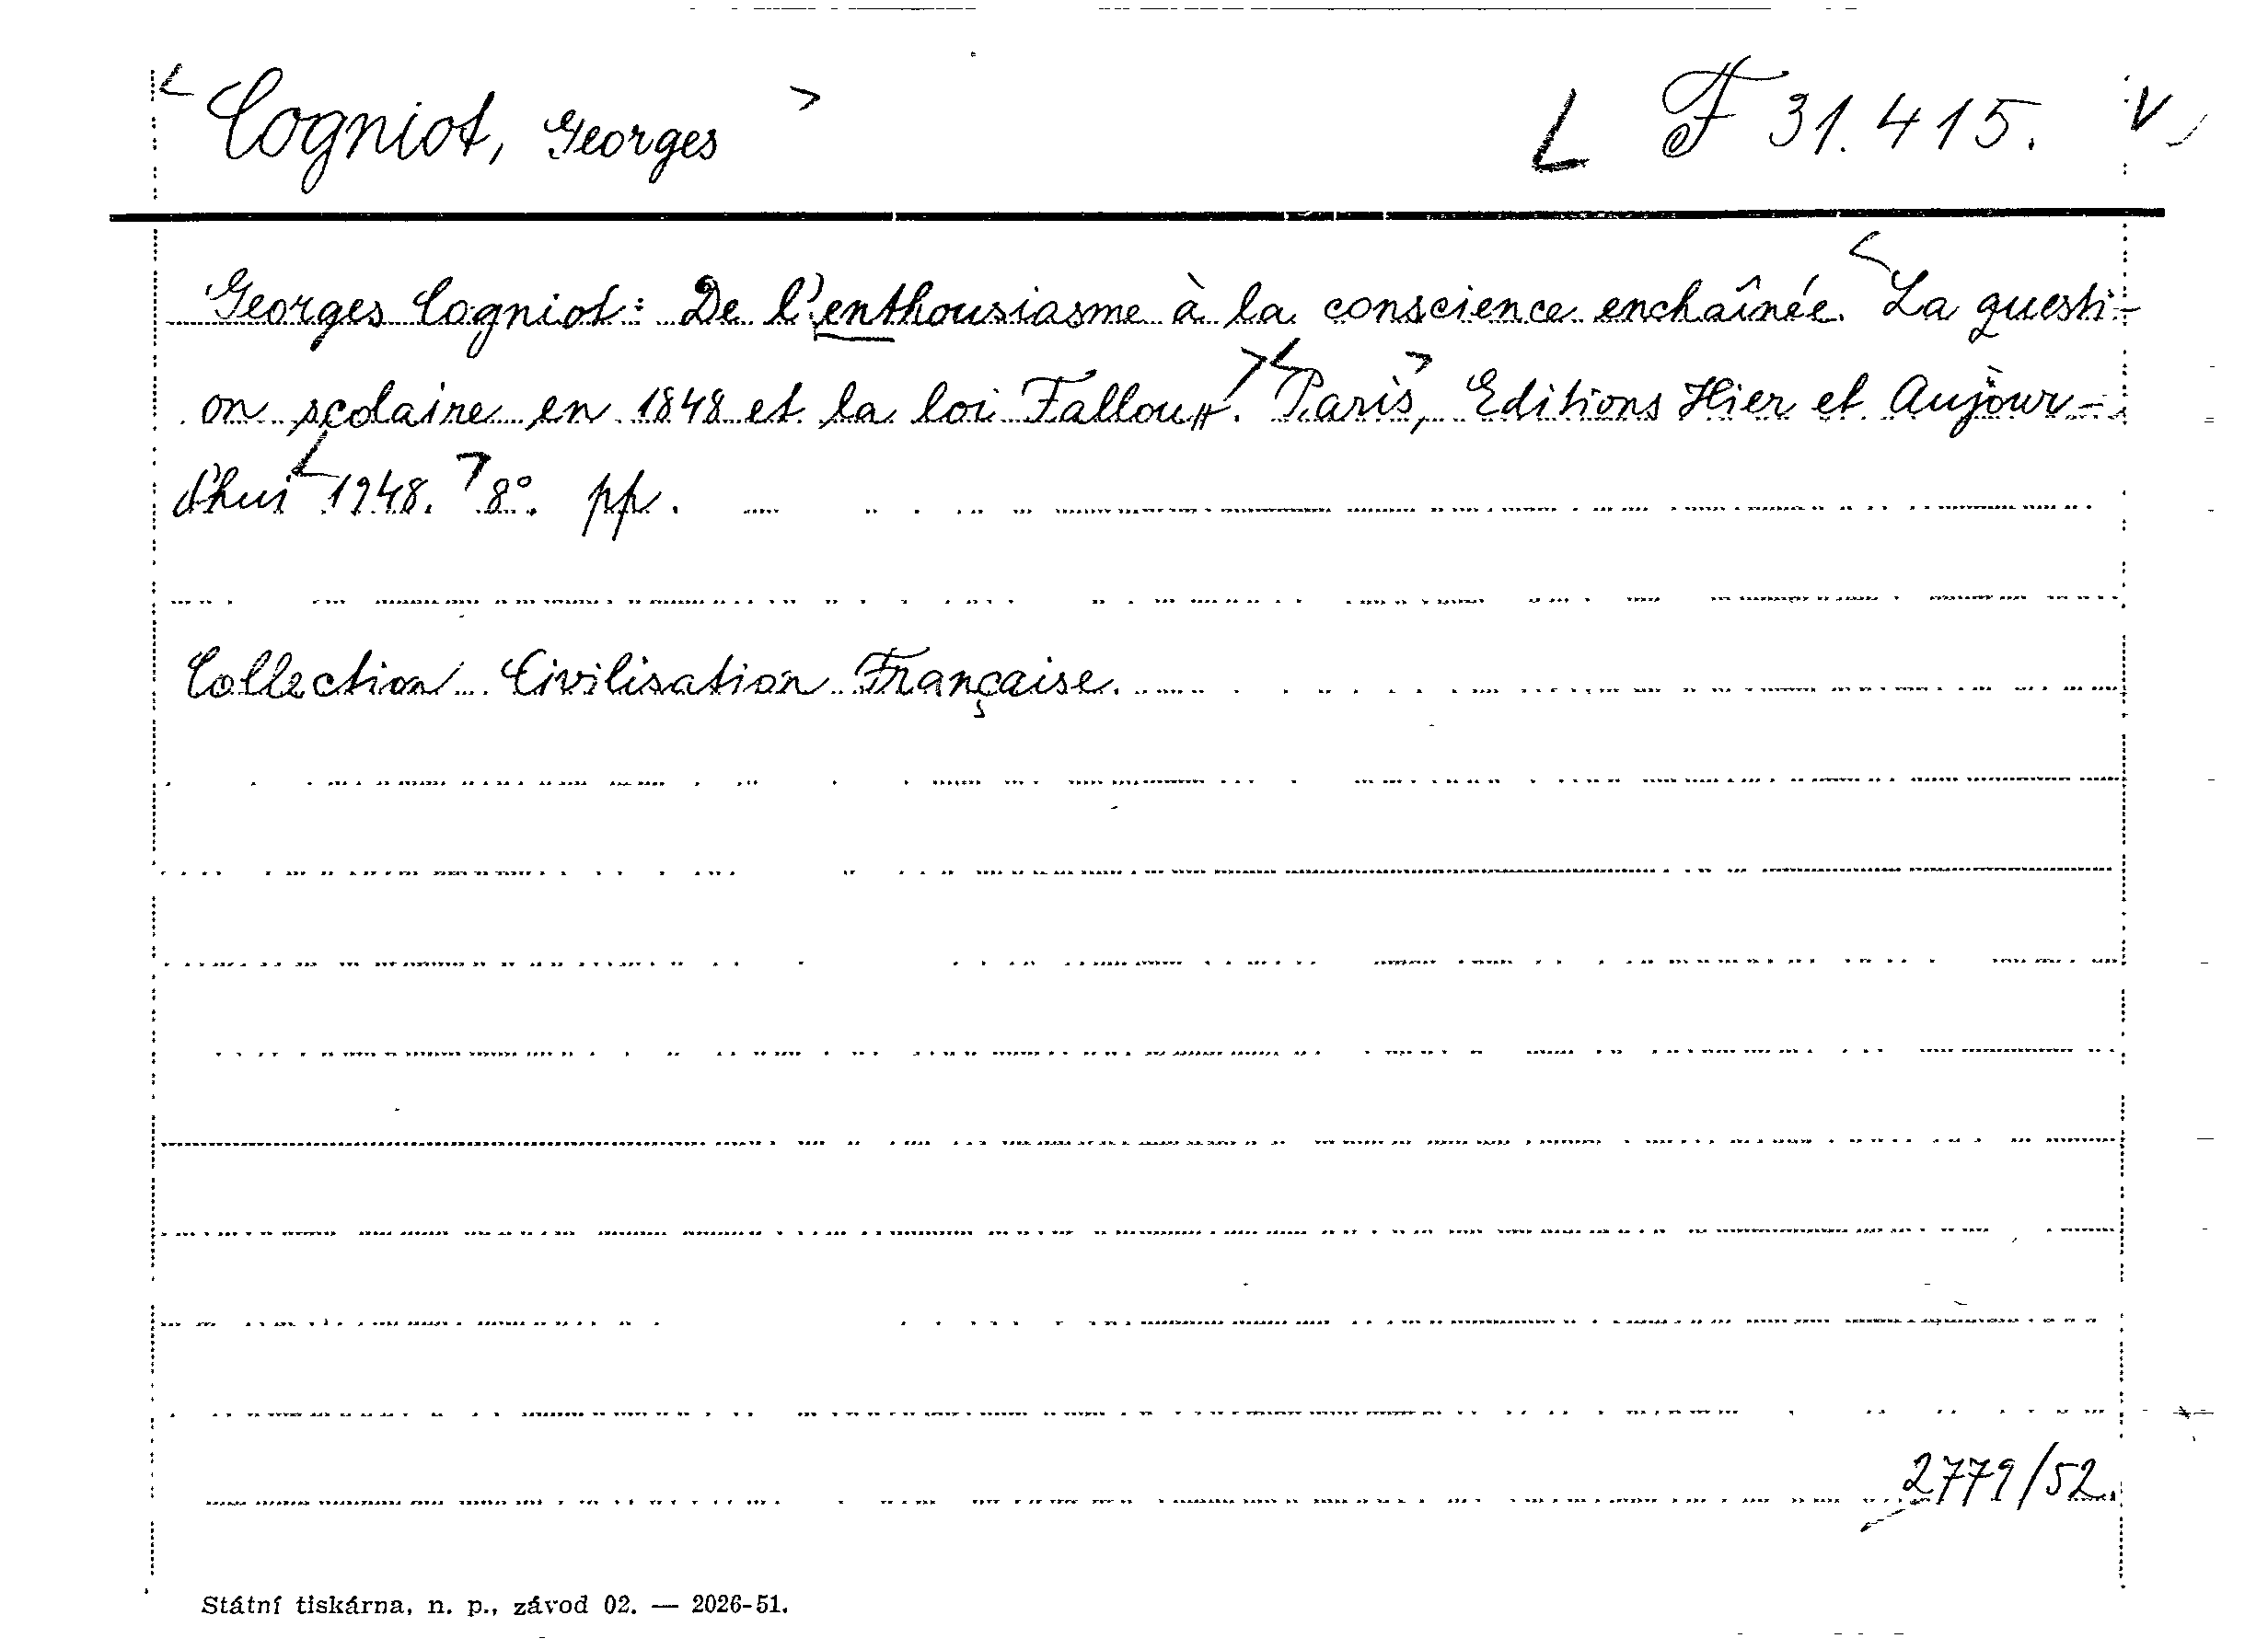 Cogniot, Georges F 31.415.
Georges Cogniot: De l'enthousiasme à la conscience enchaînée. La questi-
on scolaire en 1848 et la loi Falloux. Paris, Editions Hier et Aujour-
d'hui 1948. 8°. pp.
Collection Civilisation Française.
2779/52.
Státní tiskárna, n. p., závod 02. — 2026-51.